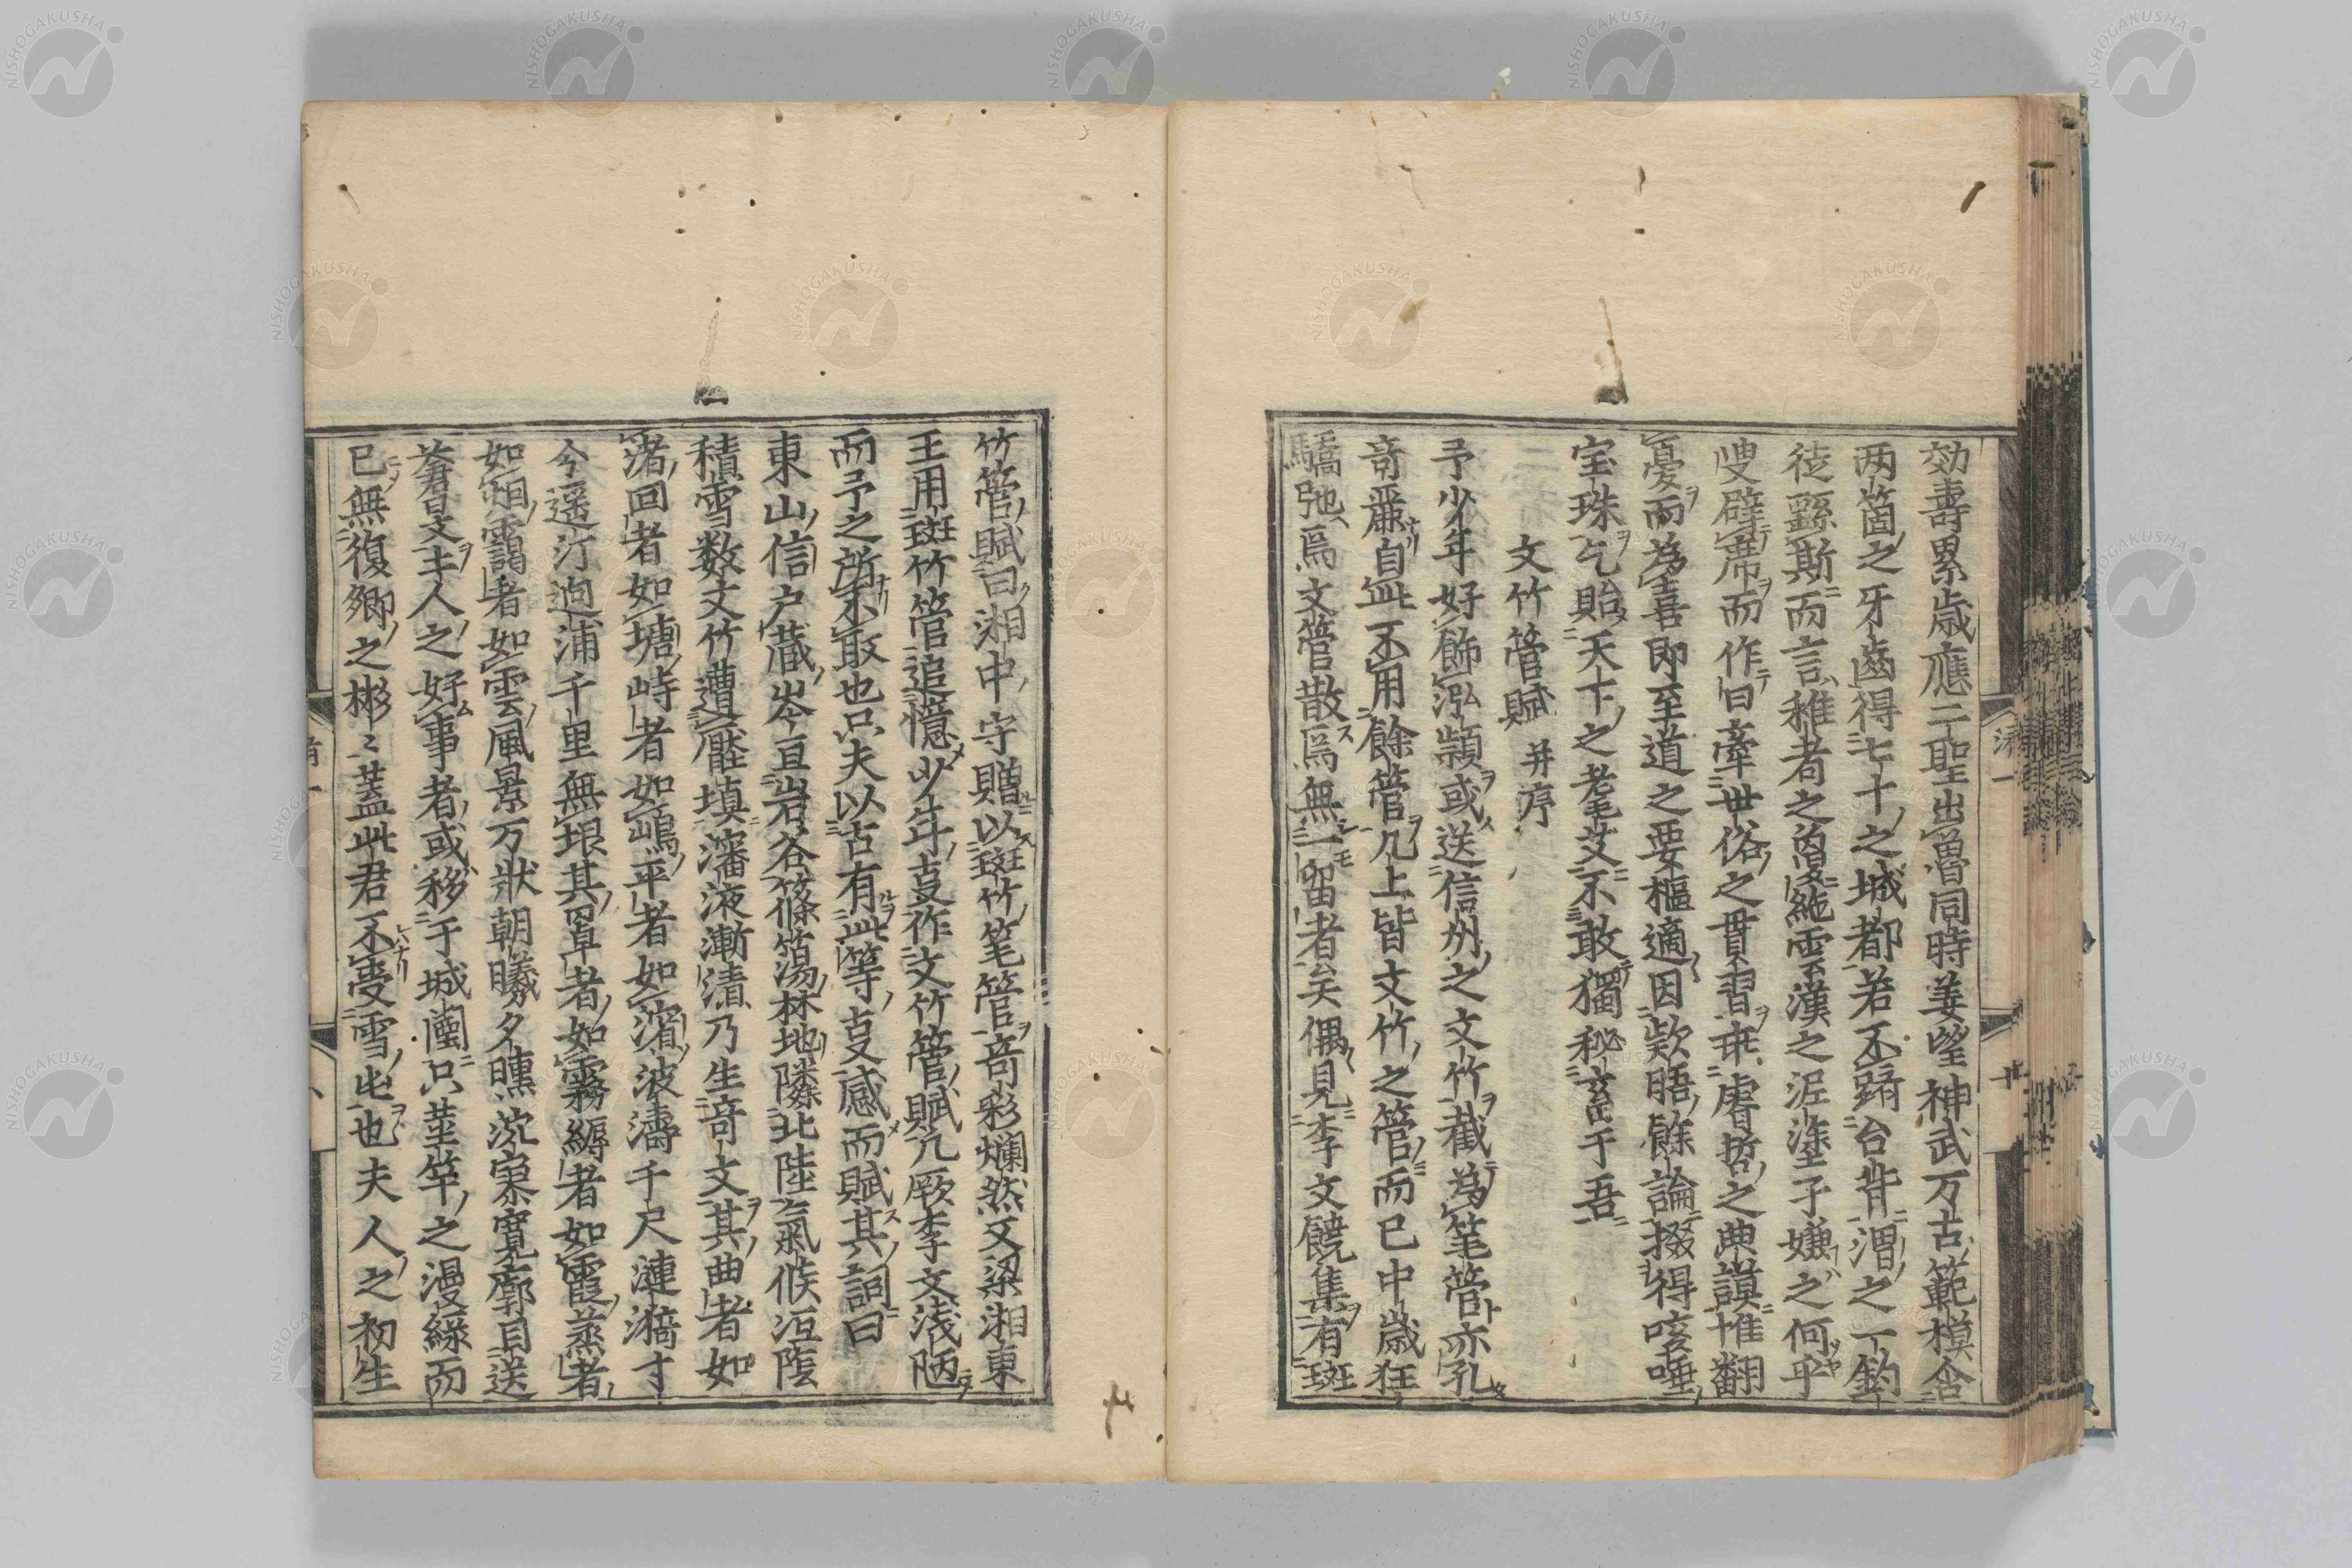 効壽累歳應二聖出魯同時姜望神武万古範模含
两箇之牙齒得七十之城都若丕蹐台背渭之一釣
徒繇斯而言稚者之曳絁雲漢之泥塗子嫌之何乎
叟辟席而作曰牽世俗之貫習乖睿哲之典謨惟翻
憂而為喜即至道之要樞適因欵晤餘論掇得咳唾
宝珠乞貽天下之耄艾不敢獨秘玄于吾
文竹管賦并序
予少年好飾泓穎或送信州之文竹截為笔管亦孔
竒麗自此不用餘管几上皆文竹之管而已中歳狂
驕弛焉文管散焉無一留者矣偶見李文饒集有斑
竹管賦曰湘中守贈以斑竹笔管竒彩爛然又梁湘東
王用斑竹管追憶少年事作文竹管賦九厥李文浅陋
而予之所不敢也只夫以古有此等事感而賦其詞曰
東山信户蔵岑亘岩谷篠簜林地隣北陸氣候沍蔭
積雪数丈竹遭壓填瀋液漸漬乃生竒文其曲者如
渚回者如塘峙者如嶋平者如濱波濤千尺漣漪寸
今遥汀逈浦千里無垠其罩者如霧縟者如霞蒸者
如烟靄者如雲風景万狀朝曦夕曛沉寥寛廓目送
蒼旻主人之好事者或移于城園只莖竿之漫緑而
已無復郷之彬〻蓋此君不受雪屯也夫人之初生